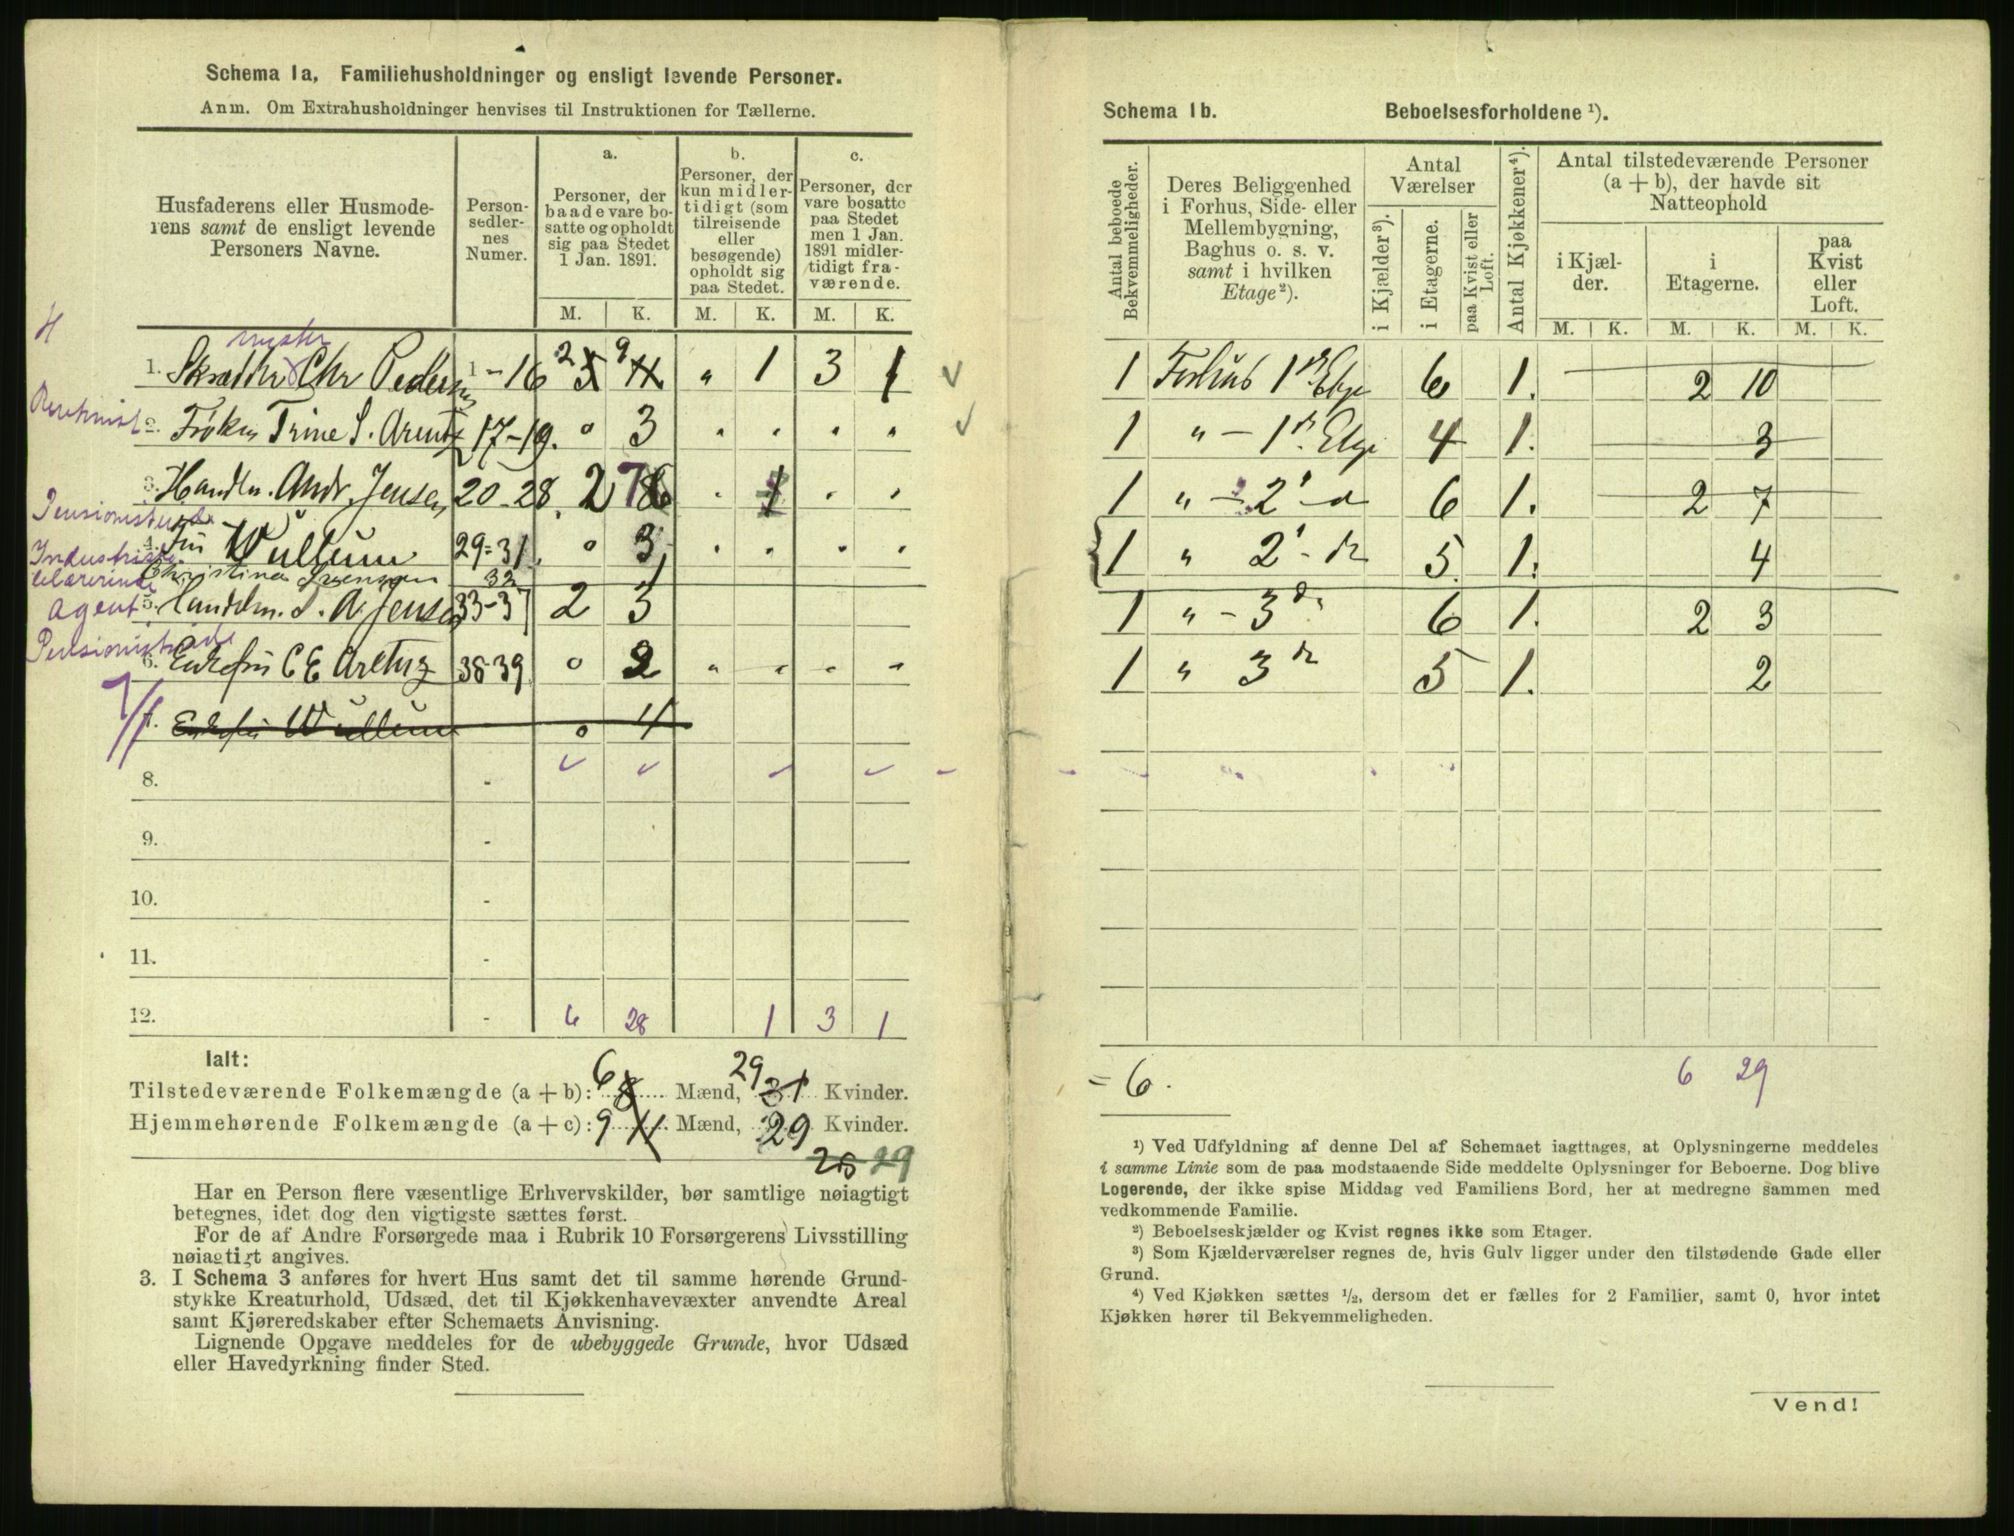 Schema 1a, Familiehusholdninger og ensligt levende Personer.
Anm. Om Extrahusholdninger henvises til Instruktionen for Tællerne.
Husfaderens eller Husmode-
rens samt de ensligt levende
Personers Navne.
Person-
sedler-
nes
Numer.
a.
Personer, der
baade vare bo-
satte og opholdt
sig paa Stedet
1 Jan. 1891.
b.
Personer, der
kun midler-
tidigt (som
tilreisende
eller
besøgende)
opholdt sig
paa Stedet.
c.
Personer, der
vare bosatte
paa Stedet
men 1 Jan.
1891 midler-
tidigt fra-
værende.
M. K. M. K. M. K.
H
1. Skrædder Chr Pedersen 1-16 2 5 9 11 „ 1 3 1
2. Frøken Trine S. Arentz 17-19. o 3 „ „ „ „
3. Handlm. Andr. Jensen 20-28. 2 7 „ 1 „ „
Pensionistinde
4. Fru Wullum 29-31. o 3 „ „ „ „
Christina Svensson 32 1
Agent
5. Handelm. S. A. Jensen 33-37 2 3
Pensionistinde
6. Enkefru C E Arentz 38-39 o 2 „ „ „ „
7. Enkefru Wullum o 4
8. -
9. -
10. -
11. -
12. - 6 28 1 3 1
Ialt:
Tilstedeværende Folkemængde (a + b): 6 8 Mænd, 29 31 Kvinder.
Hjemmehørende Folkemængde (a + c): 9 11 Mænd, 29 Kvinder.
28 29
Har en Person flere væsentlige Erhvervskilder, bør samtlige nøiagtigt
betegnes, idet dog den vigtigste sættes først.
For de af Andre Forsørgede maa i Rubrik 10 Forsørgerens Livsstilling
nøiagtigt angives.
3. I Schema 3 anføres for hvert Hus samt det til samme hørende Grund-
stykke Kreaturhold, Udsæd, det til Kjøkkenhavevæxter anvendte Areal
samt Kjøreredskaber efter Schemaets Anvisning.
Lignende Opgave meddeles for de ubebyggede Grunde, hvor Udsæd
eller Havedyrkning finder Sted.
Schema 1b. Beboelsesforholdene ¹).
Antal beboede
Bekvemmeligheder.
Deres Beliggenhed
i Forhus, Side- eller
Mellembygning,
Baghus o. s. v.
samt i hvilken
Etage²).
Antal
Værelser
i Kjælder³).
i Etagerne.
paa Kvist eller
Loft.
Antal Kjøkkener⁴).
Antal tilstedeværende Personer
(a + b), der havde sit
Natteophold
i Kjæl-
der.
i
Etagerne.
paa
Kvist
eller
Loft.
M. K. M. K. M. K.
1 Forhus 1ste Etge 6 1. 2 10
1 „ - 1ste Etge 4 1. 3
1 „ - 2 6 1. 2 7
1 „ 2 5 1. 4
1 „ - 3die 6 1. 2 3
1 „ 3die 5 1. 2
= 6. 6 29
¹) Ved Udfyldning af denne Del af Schemaet iagttages, at Oplysningerne meddeles
i samme Linie som de paa modstaaende Side meddelte Oplysninger for Beboerne. Dog blive
Logerende, der ikke spise Middag ved Familiens Bord, her at medregne sammen med
vedkommende Familie.
²) Beboelseskjælder og Kvist regnes ikke som Etager.
³) Som Kjælderværelser regnes de, hvis Gulv ligger under den tilstødende Gade eller
Grund.
⁴) Ved Kjøkken sættes ¹/₂, dersom det er fælles for 2 Familier, samt 0, hvor intet
Kjøkken hører til Bekvemmeligheden.
Vend!